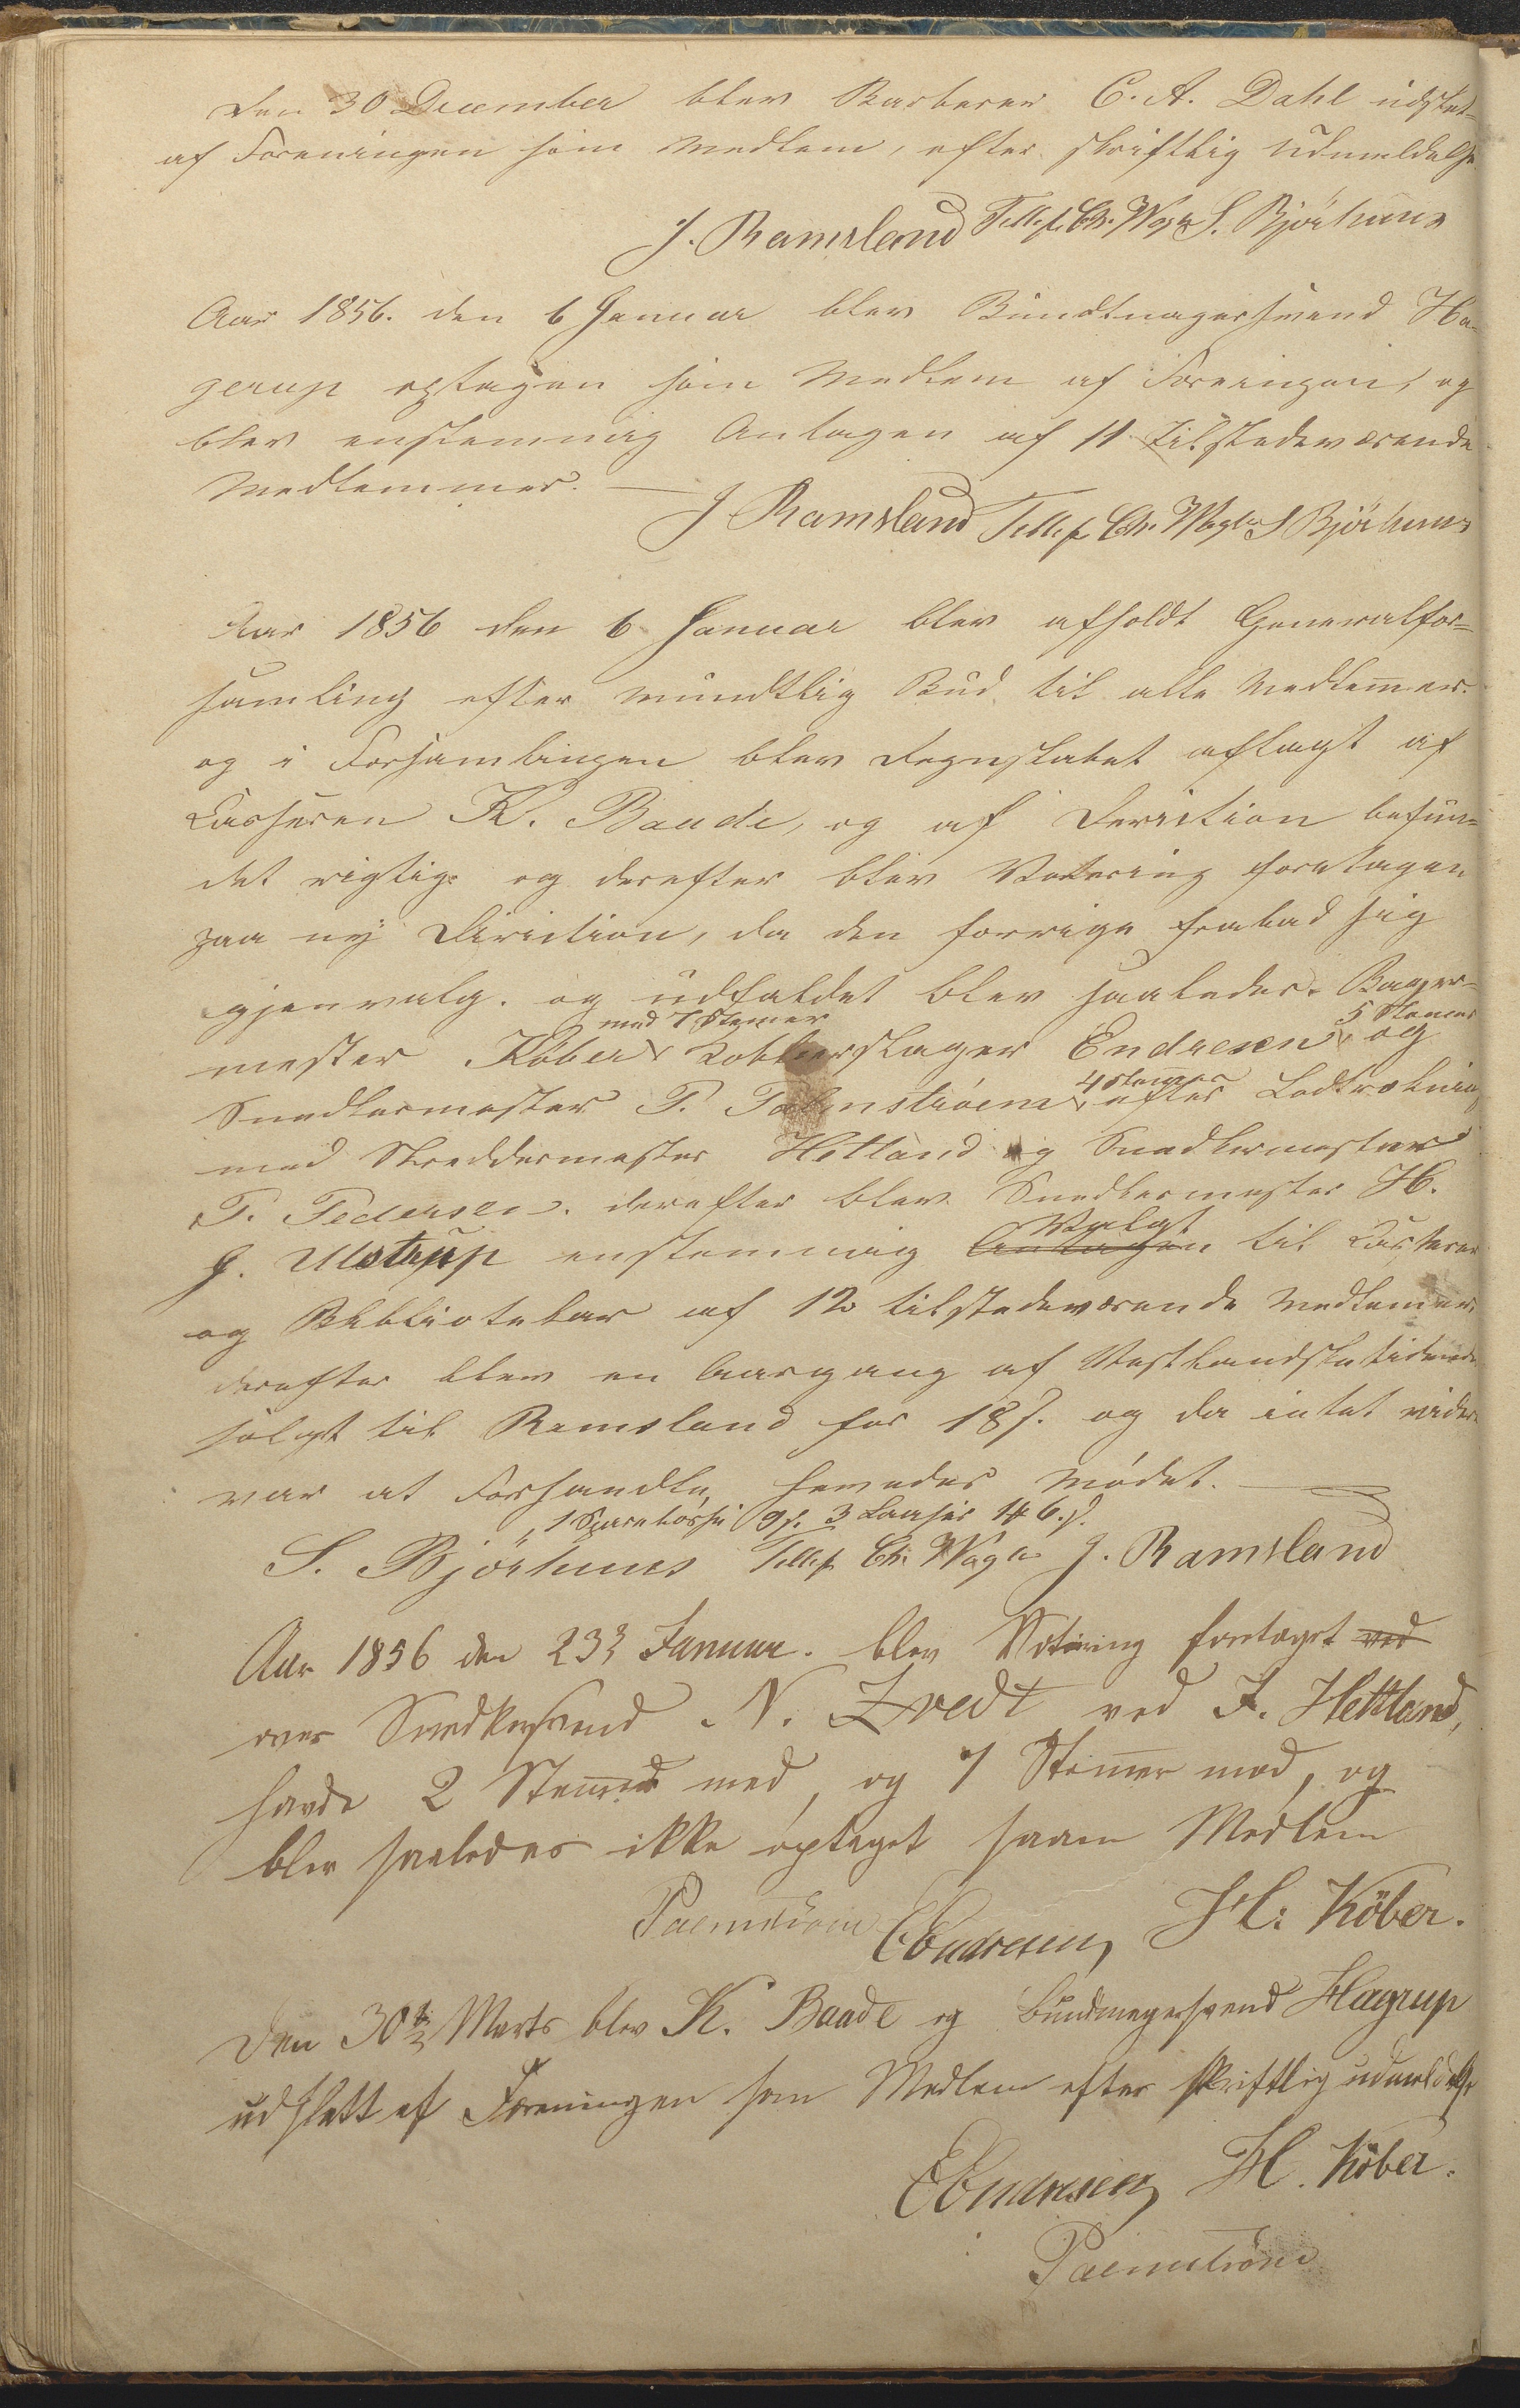 Den 30 December blev Barberer C. A. Dahl udslet-
af Foreningen som Medlem, efter skriftlig Udmeldelse.
J. Ramsland Tellef Chr. Wagle S. Bjørhuus
Aar 1856. den 6 Januar blev Bundtmagersvend Ha-
gerup optagen som Medlem af Foreningen, og
blev enstemmig Antagen af 11 tilstedeværende
Medlemmer. —
J Ramsland Tellef Chr. Wagle S Bjørhuus
Aar 1856 den 6 Januar blev afholdt Generalfor=
samling efter mundtlig Bud til alle Medlem̄er.
og i Forsamlingen blev Regnskabet aflagt af
Casseren K. Baade, og af Deriction befun=
det rigtig. og derefter blev Votering foretagen
paa ny Diriction, da den forrige frabad sig
gjenvalg. og udfaldet blev saaledes. Bager-
med 7 Stemer 5 Stemer
mester Köber, Kobberslager Endresen, og
4 stem̄er
Snedkermester P. Palmstrøm, efter Lodtrækning
med Skreddermester Hetland og Snedkermester
T. Pedersen. derefter blev Snedkermester H.
Valgt
J. Ulstrup enstemmig Antagen til Casserer
og Bibliotekar af 12 tilstedeværende Medlemmer.
derefter blev en Aargang af Vestlandsketidende
solgt til Ramsland for 18 s. og da intet videre
var at Forhandle, hevedes Mødet. —
1 Sparebøsse 9 s. 3 Laaser 1# 6. s.
S. Bjørhuus Tellef Chr. Wagle J. Ramsland
Aar 1856 den 23de Januar. blev Votering foretaget ved
over Snedkersvend N. Tvedt ved J. Hettland,
havde 2 Stem̄er med, og 7 Stem̄er mod, og
blev saaledes ikke optaget saam Medlem
Palmstrøm E Endresen H. Köber.
Den 30te Marts blev K. Baade og Bundmagersvend Hagrup
udslett af Foreningen som Medlem efter skriftlig udmeldelse
E Endresen H. Köber.
Palmstrøm